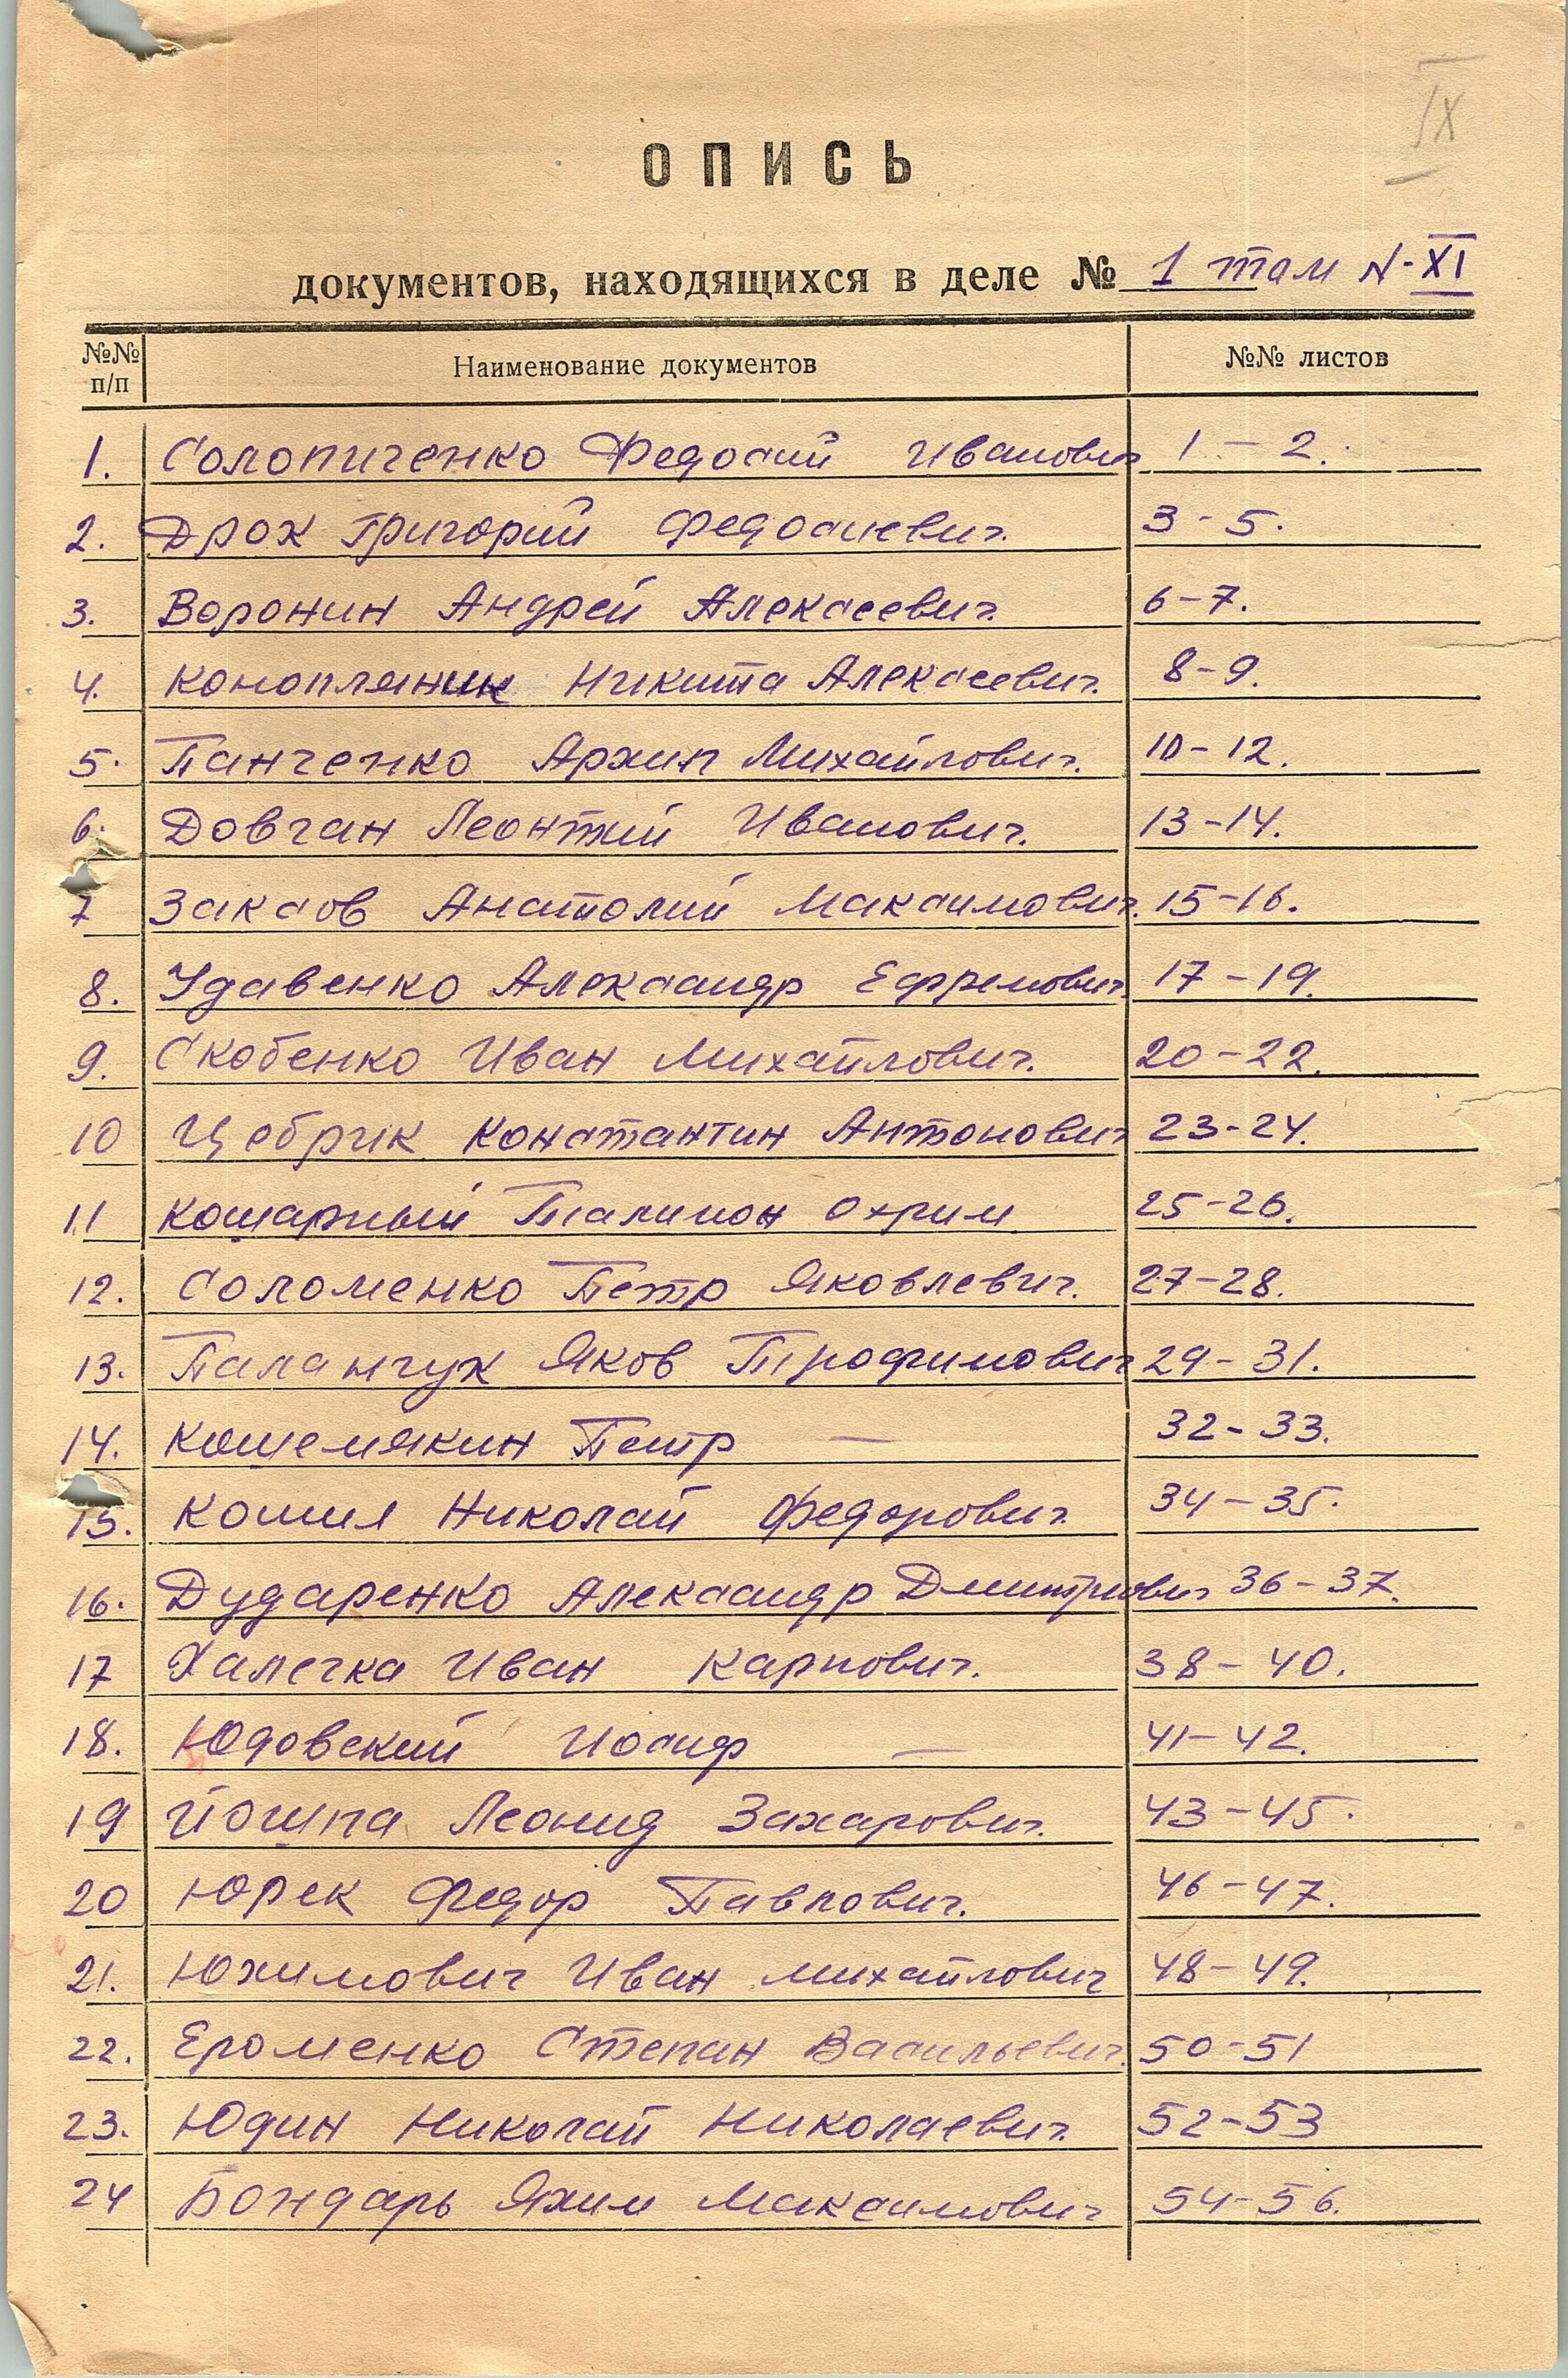 IX
ОПИСЬ
документов, находящихся в деле № 1 том N-XI
№№ п/п Наименование документов №№ листов
1. Солопиченко Федосий Иванович 1-2.
2. Дрох Григорий Федосиевич. 3-5.
3. Воронин Андрей Алексеевич. 6-7.
4. Конопляник Никита Алексеевич. 8-9.
5. Панченко Архип Михайлович. 10-12.
6. Довган Леонтий Иванович. 13-14.
7 Закасов Анатолий Максимович. 15-16.
8. Удавенко Александр Ефремович. 17-19.
9. Скобенко Иван Михайлович. 20-22.
10 Цебрик Константин Антонович 23-24.
11 Кошарный Охрим 25-26.
12. Соломенко Петр Яковлевич. 27-28.
13. Паламчук Яков Трофимович 29-31.
14. Кошемякин Петр — 32-33.
15. Кошил Николай Федорович. 34-35.
16. Дударенко Александр Дмитриович 36-37.
17 Халечка Иван Карпович. 38-40.
18. Юдовский Иосиф — 41-42.
19 Йошпа Леонид Захарович. 43-45.
20 Юрек Федор Павлович. 46-47.
21. Юхимович Иван Михайлович 48-49.
22. Ероменко Степан Васильевич. 50-51
23. Юдин Николай Николаевич. 52-53
24 Бондарь Яхим Максимович 54-56.